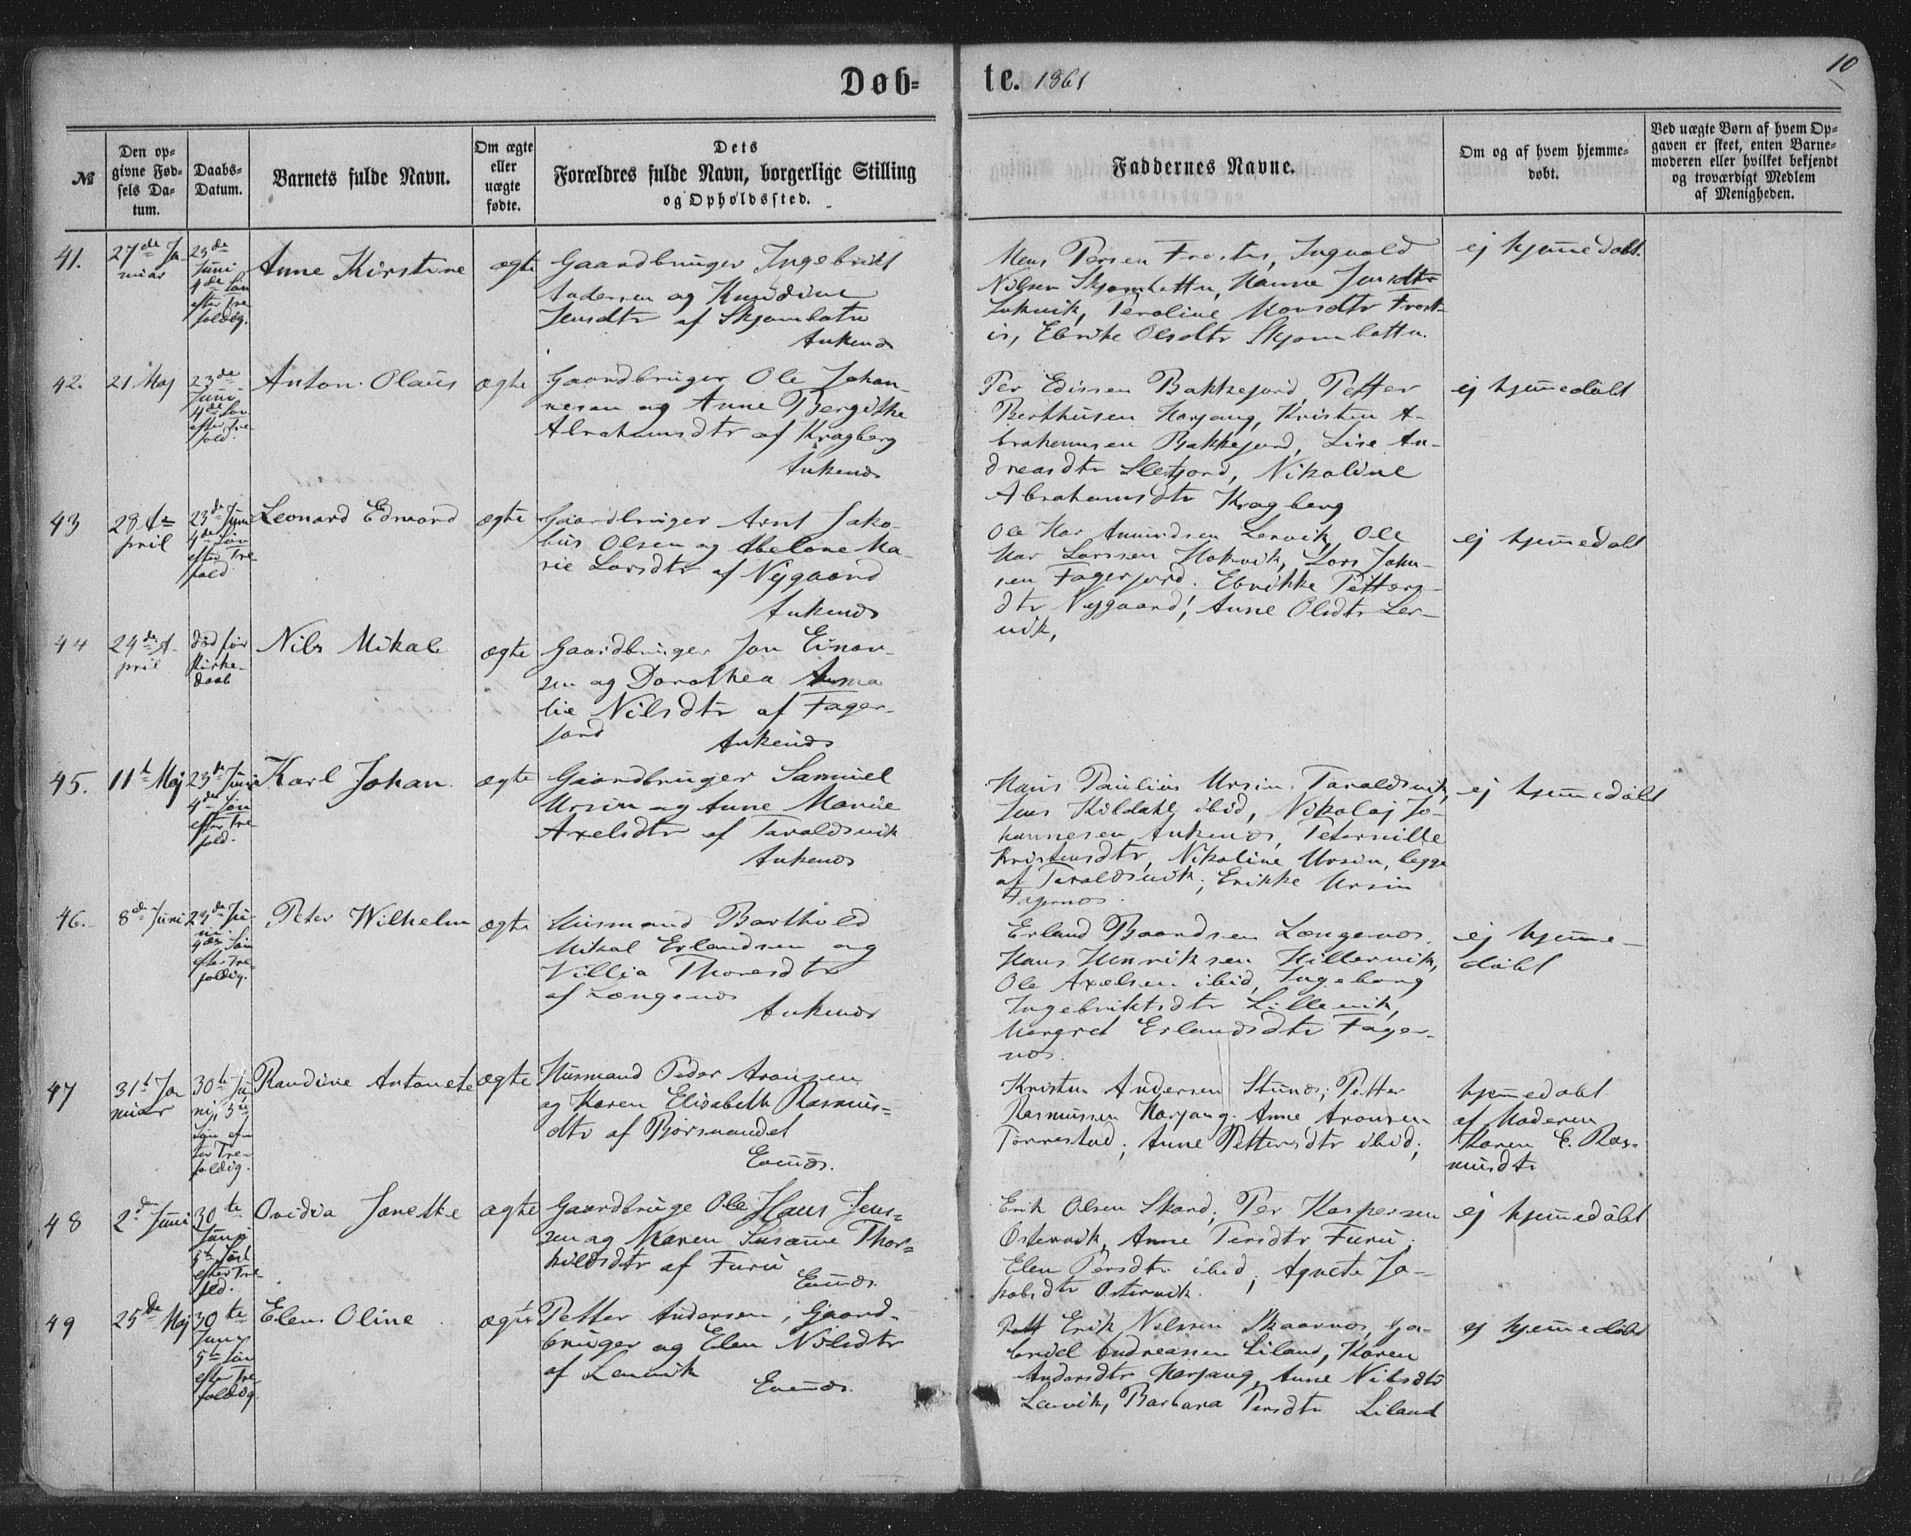 Døb-
te. 1861
10
№
Den op-
givne Fød-
sels Da-
tum.
Daabs-
Datum.
Barnets fulde Navn.
Om ægte
eller
uægte
fødte.
Dets
Forældres fulde Navn, borgerlige Stilling
og Opholdssted.
Faddernes Navne.
Om og af hvem hjemme-
døbt.
Ved uægte Børn af hvem Op-
gaven er skeet, enten Barne-
moderen eller hvilket bekjendt
og troværdigt Medlem
af Menigheden.
41.
27de Ja
nuar
23de
Juni
4de Søn
efter Tre
foldig.
Anne Kirstine
ægte
Gaardbruger Ingebrikt
Andersen og Knudine
Jensdtr af Skjombotn
Ankenæs
Mons Persen Frostis, Ingvald
Nilsen Skjombotten, Hanne Jensdtr
Peroline Monsdtr Frost-
is, Ebrike Olsdtr Skjombotten.
ej hjemedøbt.
42.
21 Maj
23de
Juni
4de Søn
efter Tre
fold.
Anton Olaus
ægte
Gaardbruger Ole Johan-
nesen og Anne Bergitte
Abrahamsdtr af Kragberg
Ankenæs
Per Edissen Bakkejord, Petter
Berthusen Harjang, Kristen A-
brahamsen Bakkejord, Lise An-
dreasdtr Sletjord, Nikoline
Abrahamsdtr Kragberg
ej hjemedøbt
43
28 A-
pril
23de Juni
4de Søn
efter Tre
fold
Leonard Edvard
ægte
Gaardbruger Arnt Jako-
bus Olsen og Abelone Ma
rie Larsdtr af Nygaard
Ankenæs
Ole Har Amundsen Lervik, Ole
Har Larssen Hakvik, Lars John-
sen Fagerjord. Ebrikke Petters-
dtr Nygaard, Anne Olsdtr Ler-
vik,
ej hjemedøbt
44
24de A-
pril
død før
Kirke-
daab
Nils Mikal
ægte
Gaardbruger Jon Einar-
sen og Dorothea Ama
lie Nilsdtr af Fager-
jord
Ankenæs
45.
11te Maj
23de Juni
4de Søn
efter Tre
fold.
Karl Johan
ægte
Gaardbruger Samuel
Ursin og Anne Marie
Axelsdtr af Taraldsvik
Ankenæs
Hans Paulius Ursin, Taraldsvik,
Jens Kildahl ibid, Nikolaj Jo-
hannesen Ankenæs, Peternille
Kristensdtr, Nikoline Ursin, begge
af Taraldsvik; Erikke Ursin
Fagernæs.
ej hjemedøbt
46.
8de Juni
23de Ju-
ni
4de Søn
efter Tre-
foldig.
Peter Wilhelm
ægte
Husmand Barthold
Mikal Erlandsen og
Villia Thoresdtr
af Længenæs
Ankenæs
Erland Baardsen Længenæs.
Hans Henriksen Hillervik,
Ole Axelsen ibid, Ingeborg
Ingebriktsdtr Lillevik,
Margret Erlandsdtr Fager-
næs.
ej hjeme-
døbt
47
31te Ja
nuar
30te Ju
ni, 5te
Søn ef-
ter Tre-
foldig.
Randine Antonete
ægte
Husmand Peder Aronsen
og Karen Elisabeth Rasmus-
dtr af Børsvandet
Evenæs.
Kristen Andersen Stunæs; Petter
Rasmussen Harjang. Anne Aronsen
Tørrestad; Anne Pettersdtr ibid;
hjemedøbt
af Moderen
Karen E. Ras-
musdtr
48
2de Juni
30te
Juni
5te Sønd
efter Tre
fold.
Ovidia Janetke
ægte
Gaardbruge Ole Hans Jens-
sen og Maren Susanne Thor-
kildsdtr af Furu
Evenæs.
Erik Olsen Skard; Per Kaspersen
Østervik, Anne Persdtr Furu;
Elen Persdtr ibid; Agnete Ja-
kobsdtr Østervik.
ej hjemedøbt
49
25de Maj
30te
Juni
5te Søn
efter Tre
foldig
Elen Oline
ægte
Petter Andersen, Gaard-
bruger og Elen Nilsdtr
af Lenvik
Evenæs.
Erik Nilssen Skaanæs, Ga-
briel Andreassen Liland, Karen
Andersdtr Harjang, Anne Nilsdtr
Lenvik, Barbara Persdtr Liland
ej hjemedøbt